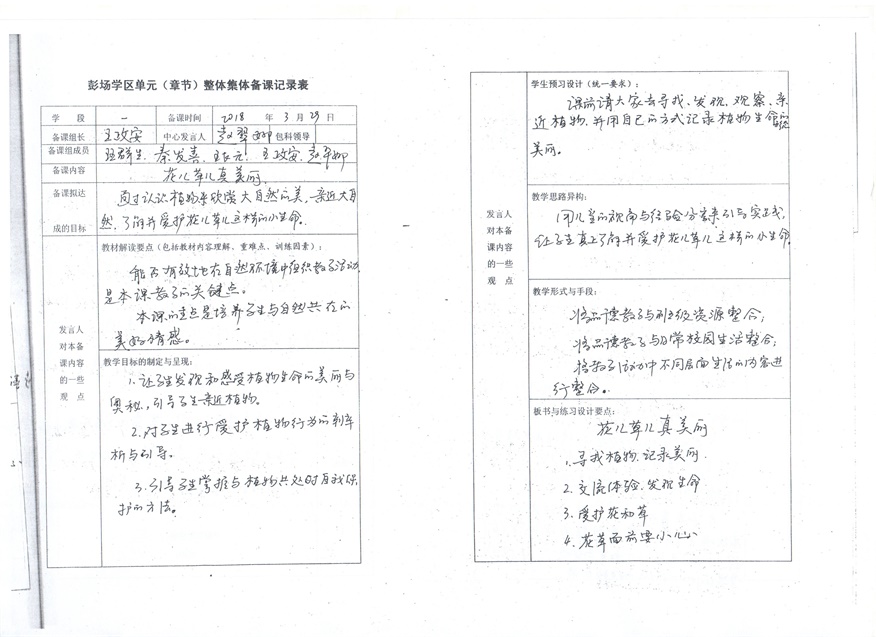 彭场学区单元（章节）整体集体备课记录表
学 段 一 备课时间 2018 年 3 月 29 日
备课组长 王政安 中心发言人 包科领导
备课组成员 秦发喜、 王政安、
备课内容 花儿草儿真美丽
备课拟达 通过认识植物来欣赏大自然的美，亲近大自
成的目标 然，了解并爱护花儿草儿这样的小生命。
教材解读要点（包括教材内容理解、重难点、训练因素）：
能否有效地在自然环境中组织教学活动
是本课教学的关键点。
本课的重点是培养学生与自然共在的
美好情感。
发言人
对本备
课内容
的一些
观 点
教学目标的制定与呈现：
1. 让学生发现和感受植物生命的美丽与
奥秘，引导学生亲近植物。
2. 对学生进行爱护植物行为的判断
析与引导。
3. 引导学生掌握与植物共处时自我保
护的方法。
学生预习设计（统一要求）：
课前请大家去寻找、发现、观察、亲
近植物，并用自己的方式记录植物生命的
美丽。
发言人
对本备
课内容
的一些
观 点
教学思路异构：
用儿童的视角与经验分享来引导实践，
让学生真正了解并爱护花儿草儿这样的小生命。
教学形式与手段：
将品德教学与班级资源整合；
将品德教学与日常校园生活整合；
将教学活动中不同层面生活的内容进
行整合。
板书与练习设计要点：
花儿草儿真美丽
1. 寻找植物、记录美丽.
2. 交流体验、发现生命
3. 爱护花和草
4. 花草面前要小心